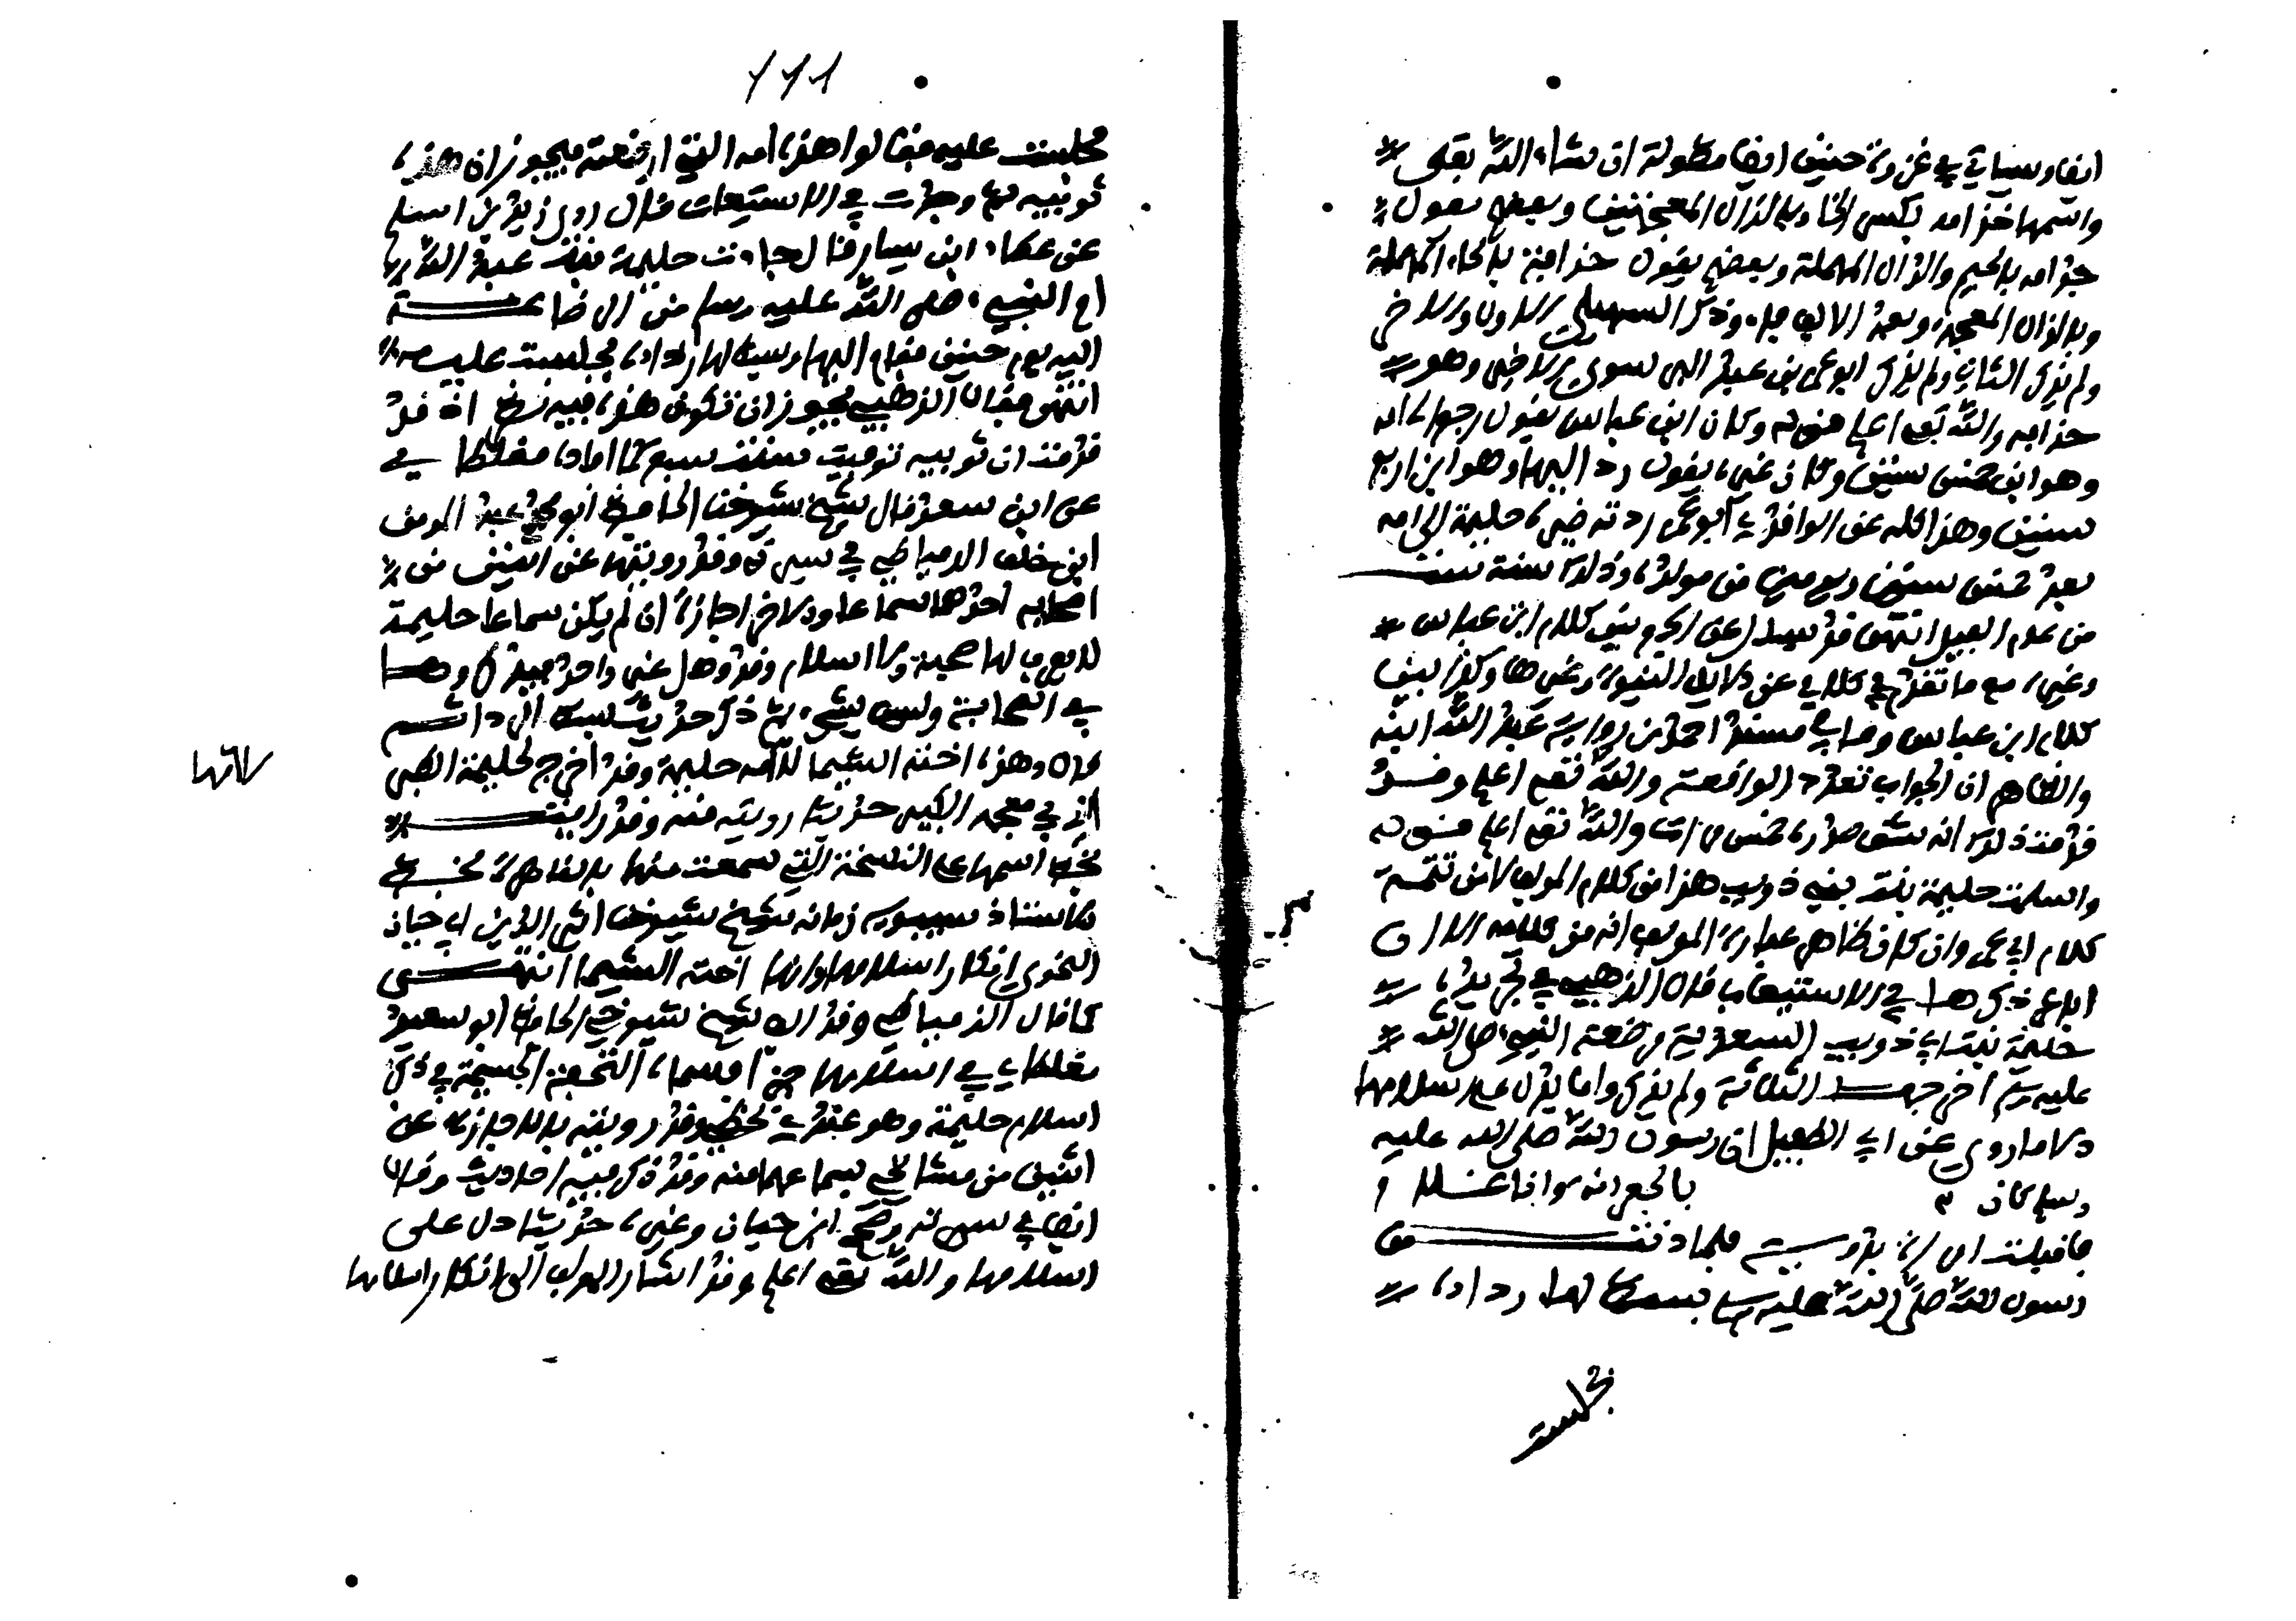 ايضا وسياتي في غزوة حنين ايضا مطولة ان شاء الله تعلى
واسمها خذامه بكسر الخاء وبالذال المعجمتين وبعضهم يقول
جدامه بالجيم والدال المهملة وبعضهم يقول حذافة بالحاء المهملة
وبالذال المعجمة وبعد الالف فاء وذكر السهيلي الاول والاخر
ولم يذكر الثاني ولم يذكر ابو عمر بن عبد البر سوى الاخير وهو
حذافه والله تعلى اعلم قوله وكان ابن عباس يقول رجع الى امه
وهو ابن خمس سنين وكان غيره يقول رد اليها وهو ابن اربع
سنين وهذا كله عن الواقدي ابو عمر ردته ظيره حليمة الى امه
بعد خمس سنين ويومين من مولده وذلك سنة ست
من عام الفيل انتهى قد يسال عن الجمع بين كلام ابن عباس
وغيره مع ما تقدم في كلامي عن دلايل النبوة وغيرها وكذا بين
كلام ابن عباس وما في مسند احمد من رواية عبد الله ابنه
والظاهر ان الجواب تعدد الواقعة والله تعلى اعلم وقد
قدمت ذلك انه شق صدره خمس مرات والله تعلى اعلم قوله
واسلمت حليمة بنت ابي ذويب هذا من كلام المولف لا من تتمة
كلام ابي عمر وان كان ظاهر عبارة المولف انه من كلامه الا ان
ابا عمر ذكرها في الاستيعاب قال الذهبي في تجريده
حليمة بنت ابي ذويب السعدية مرضعة النبي صلى الله
عليه وسلم اخرجها الثلاثة ولم يذكروا ما يدل على اسلامها
الا ما روي عن ابي الطفيل ان رسول الله صلى الله عليه
وسلم كان بالجعرانه وانا غلام
فاقبلت امراة بدوية فلما دنت من
رسول الله صلى الله عليه وسلم بسط لها رداءه
فجلست
111
فجلست عليه فقالوا هذه امه التي ارضعته فيجوز ان هذه
ثويبه وجدت في الاستيعاب قال روى زيد بن اسلم
عن عطاء ابن يسار قال جاءت حليمة بنت عبد الله
ام النبي صلى الله عليه وسلم من الرضاعة
اليه يوم حنين فقام اليها وبسط لها رداءه فجلست عليه
انتهى فقال الذهبي يجوز ان تكون هذه فيه نظر اذ قد
قدمت ان ثويبه توفيت سنة سبع كما افاده مغلطاي
عن ابن سعد قال شيخ شيوخنا الحافظ ابو محمد عبد المومن
ابن خلف الدمياطي في سيرته وقد رويتها عن اثنين من
اصحابه احدهما سماعا والاخر اجازة ان لم يكن سماعا حليمة
لا يعرف لها صحبة ولا اسلام وقد وهل غير واحد فذكروها
في الصحابة وليس بشيء ثم ذكر حديث بسط الرداء ثم
قال وهذه اخته الشيما لا امه حليمة وقد اخرج لحليمة الطبراني
في معجمه الكبير حديثا رويته منه وقد رايت
تجاه اسمها على النسخة التي سمعت منها بالقاهرة بخط
الاستاذ سيبويه زمانه شيخ شيوخنا اثير الدين ابي حيان
النحوي انكار اسلامها وانها اخته الشيما انتهى
كما قال الدمياطي وقد الف شيخ شيوخي الحافظ ابو سعيد
مغلطاي في اسلامها جزءا سماه التحفة الجسيمة في ذكر
اسلام حليمة وهو عندي بخطي وقد رويته بالاجازة عن
اثنين من مشايخي بسماعهما منه وقد ذكر فيه احاديث وقال
ايضا في سيرته وصحح ابن حبان وغيره حديثا دل على
اسلامها والله تعلى اعلم وقد اشار المولف الى انكار اسلامها